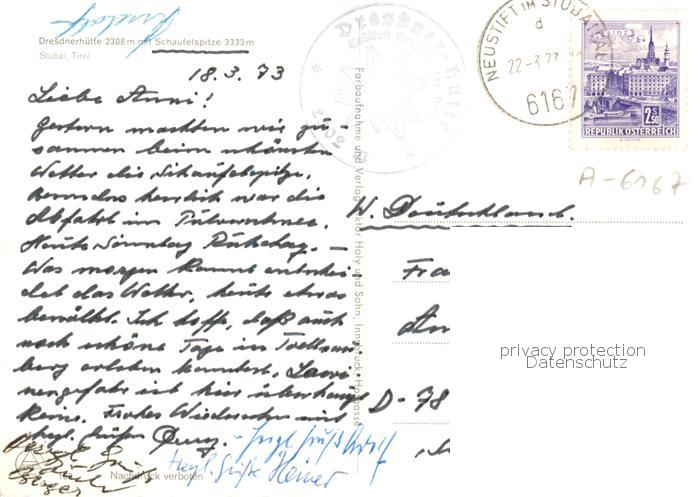 Dresdnerhütte 2308 m mit Schaufelspitze 3333 m
Stubai, Tirol
18.3.73
Liebe Anni!
Gestern machten wir zu-
sammen beim schönsten
Wetter die Schaufelspitze,
Besonders herrlich war die
Abfahrt im Pulverschnee.
Heute Sonntag Ruhetag. —
Was morgen kommt entschei
det das Wetter, heute etwas
bewölkt. Ich hoffe, daß auch
noch schöne Tage in
berg erleben konntest. Lawi
nengefahr ist hier überhaupt
keine. Frohes Wiedersehen mit
hzgl. Grüßen
Hzgl. Grüße Heiner
Nachdruck verboten
Farbaufnahme und Verlag Viktor Holy und Sohn, Innsbruck-Höttinggasse
Dresdner-Hütte
NEUSTIFT IM STUBAITAL
d
22-3.73
6167
LINZ
2.50
REPUBLIK ÖSTERREICH
A-6167
W. Deutschland.
Fra
An
D-78
privacy protection
Datenschutz